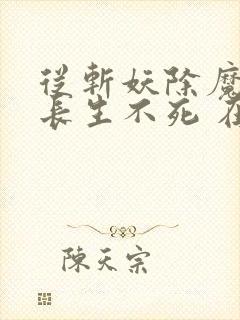 從斬妖除魔
長生不死 在
陳天宗